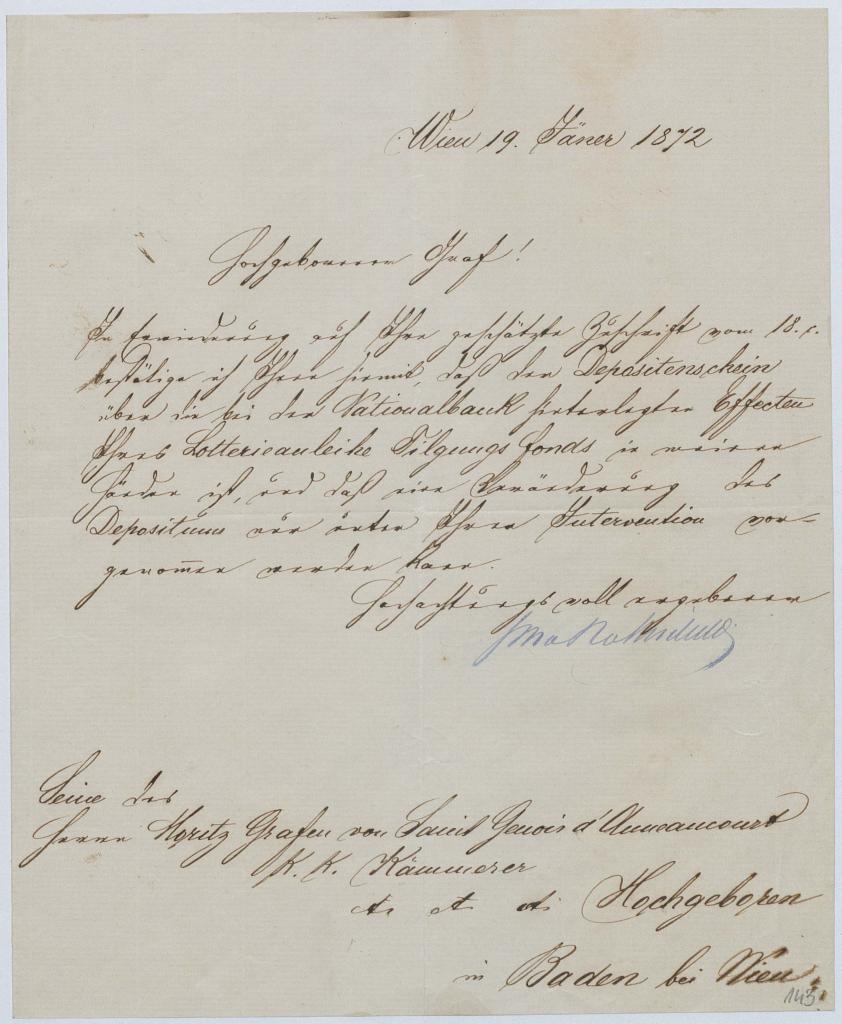 Wien 19. Jäner 1872
Hochgeborener Graf!
In Erwiederung auf Ihre geschätzte Zuschrift vom 18. c.
bestätige ich Ihnen hiermit, daß der Depositenschein
über die bei der Nationalbank hinterlegten Effecten
Ihres Lotterieanleihe Tilgungs fonds in meinen
Händen ist, und daß eine Veränderung des
Depositums nur unter Ihrer Intervention vor-
genommen werden kann.
Hochachtungsvoll ergebener
Rothschild
Seine des
Herrn Moritz Grafen von Saint Genois d'Anneaucourt
K. K. Kämmerer
Hochgeboren
in Baden bei Wien
143